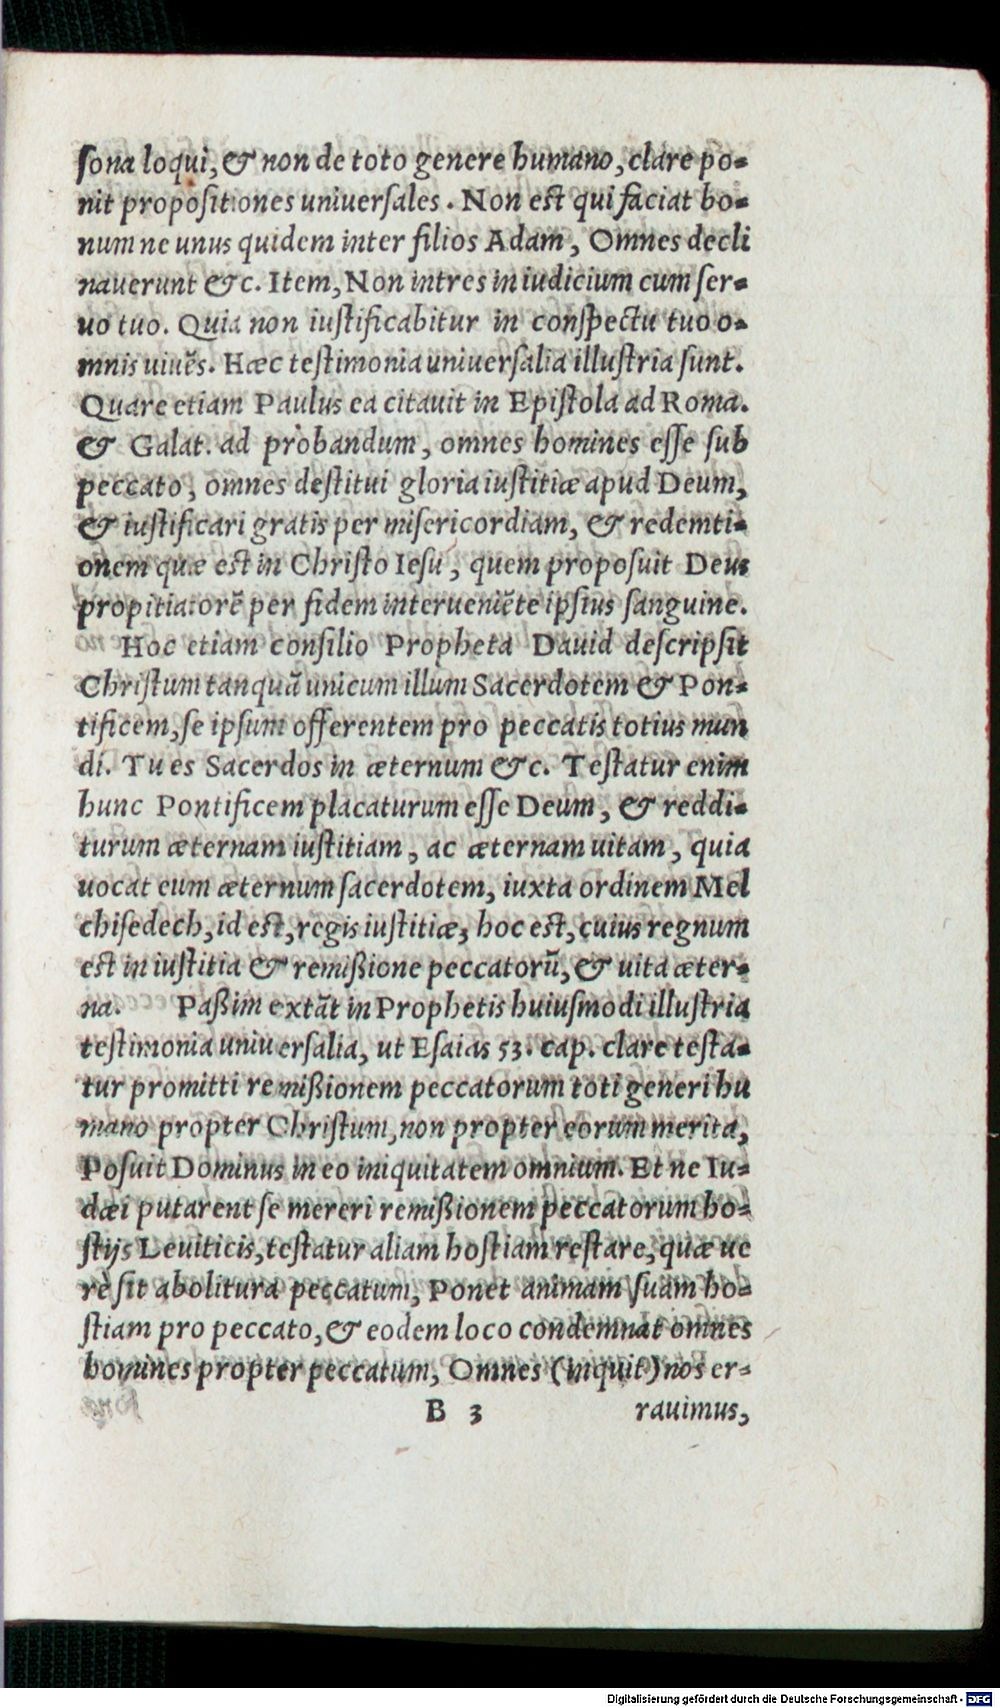 sona loqui, & non de toto genere humano, clare po-
nit propositiones uniuersales. Non est qui faciat bo-
num ne unus quidem inter filios Adam, Omnes decli
nauerunt &c. Item, Non intres in iudicium cum ser-
uo tuo. Quia non iustificabitur in conspectu tuo o-
mnis uiuēs. Hæc testimonia uniuersalia illustria sunt.
Quare etiam Paulus ea citauit in Epistola ad Roma.
& Galat. ad probandum, omnes homines esse sub
peccato, omnes destitui gloria iustitiæ apud Deum,
& iustificari gratis per misericordiam, & redemti-
onem quæ est in Christo Iesu, quem proposuit Deus
propitiatorē per fidem interueniēte ipsius sanguine.
Hoc etiam consilio Propheta Dauid descripsit
Christum tanquā unicum illum Sacerdotem & Pon-
tificem, se ipsum offerentem pro peccatis totius mun
di. Tu es Sacerdos in æternum &c. Testatur enim
hunc Pontificem placaturum esse Deum, & reddi-
turum æternam iustitiam, ac æternam uitam, quia
uocat eum æternum sacerdotem, iuxta ordinem Mel
chisedech, id est, regis iustitiæ, hoc est, cuius regnum
est in iustitia & remißione peccatorū, & uita æter-
na. Paßim extāt in Prophetis huiusmodi illustria
testimonia uniuersalia, ut Esaias 53. cap. clare testa-
tur promitti remißionem peccatorum toti generi hu
mano propter Christum, non propter eorum merita,
Posuit Dominus in eo iniquitatem omnium. Et ne Iu-
dæi putarent se mereri remißionem peccatorum ho-
stijs Leuiticis, testatur aliam hostiam restare, quæ ue
rè sit abolitura peccatum, Ponet animam suam ho-
stiam pro peccato, & eodem loco condemnat omnes
homines propter peccatum, Omnes (inquit) nos er-
B 3 rauimus,
Digitalisierung gefördert durch die Deutsche Forschungsgemeinschaft - DFG